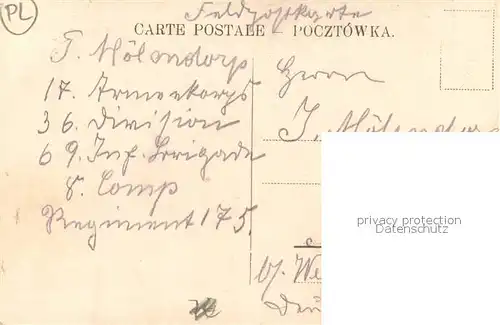 PL
Feldpostkarte
CARTE POSTALE – POCZTÓWKA.
F. Mölendorp
17. Armeekorps
36. Division
69. Inf. Brigade
8. Comp
Regiment 175
Herrn
J. Mölendorp
privacy protection
www.ansichtskarten-center.de
b/. We
Deu